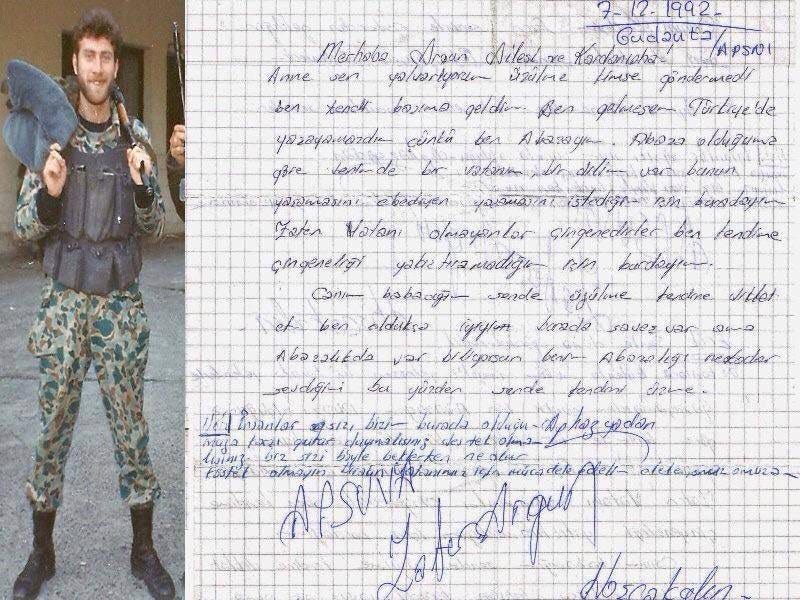 7-12-1992-
Gudauta/APSNI
Merhaba Argun Ailesi ve Kardanuha
Anne sen yalvarıyorum üzülme kimse göndermedi
ben kendi başıma geldim. Ben gelmesem Türkiye'de
yaşayamazdım çünkü ben Abazayım. Abaza olduğuma
göre benimde bir vatanım bir dilim var bunun
yaşamasını ebediyen yaşamasını istediğim için buradayım.
Zaten Vatanı olmayanlar çingenedirler ben kendime
çingeneliği yakıştıramadığım için burdayım.
Canım babacığım sende üzülme kendine dikkat
et ben oldukça iyiyim burada savaş var ama
Abazalıkda var biliyorsun benim Abazalığı nekadar
sevdiğimi bu yüzden sende kendini üzme.
insanlar siz, bizim burada olduğu
duymalısınız destek olma
biz sizi böyle beklerken ne olur
köstek olmayın için mücadele edelim
APSUVA
Zafer Argun
Hoşcakalın-